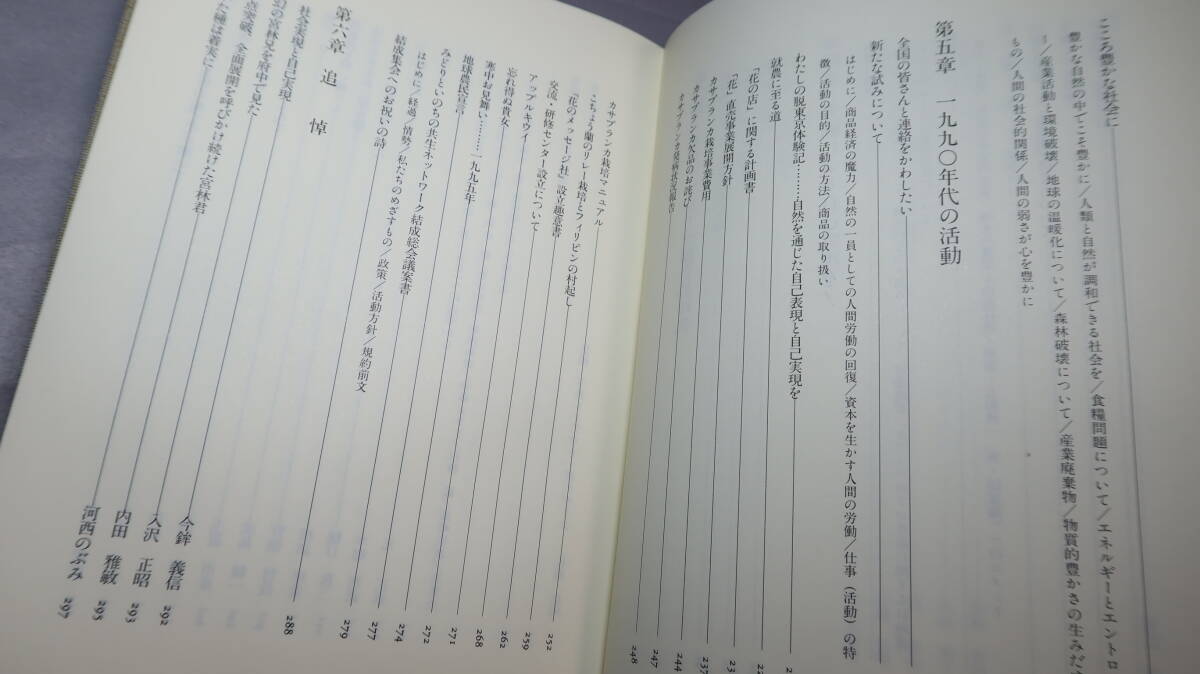 こころ豊かな社会に
豊かな自然の中でこそ豊かに／人類と自然が調和できる社会を／食糧問題について／エネルギーとエントロ
ー／産業活動と環境破壊／地球の温暖化について／森林破壊について／産業廃棄物／物質的豊かさの生みだ
もの／人間の社会的関係／人間の弱さが心を豊かに
第五章 一九九〇年代の活動
全国の皆さんと連絡をかわしたい
新たな試みについて
はじめに／商品経済の魔力／自然の一員としての人間労働の回復／資本を生かす人間の労働／仕事（活動）の特
徴／活動の目的／活動の方法／商品の取り扱い
わたしの脱東京体験記………自然を通じた自己表現と自己実現を
就農に至る道 22
「花の店」に関する計画書 23
「花」直売事業展開方針 237
カサブランカ栽培事業費用 244
カサブランカ欠品のお詫び 247
カサブランカ発病状況報告 248
カサブランカ栽培マニュアル
こちょう蘭のリレー栽培とフィリピンの村起し 252
「花のメッセージ社」設立趣意書
交流・研修センター設立について 259
アップルキウイ 262
忘れ得ぬ貴女 268
寒中お見舞い………一九九五年 271
地球農民宣言 272
みどりといのちの共生ネットワーク結成総会議案書 274
はじめに／経過／情勢／私たちのめざすもの／政策／活動方針／規約前文
結成集会へのお祝いの詩 277
279
第六章 追悼
社会実現と自己実現 288
幻の宮林兄を府中で見た 今鉾 義信 292
点突破、全面展開を呼びかけ続けた宮林君 入沢 正昭 293
た種は着実に 内田 雅敏 295
河西のぶみ 297